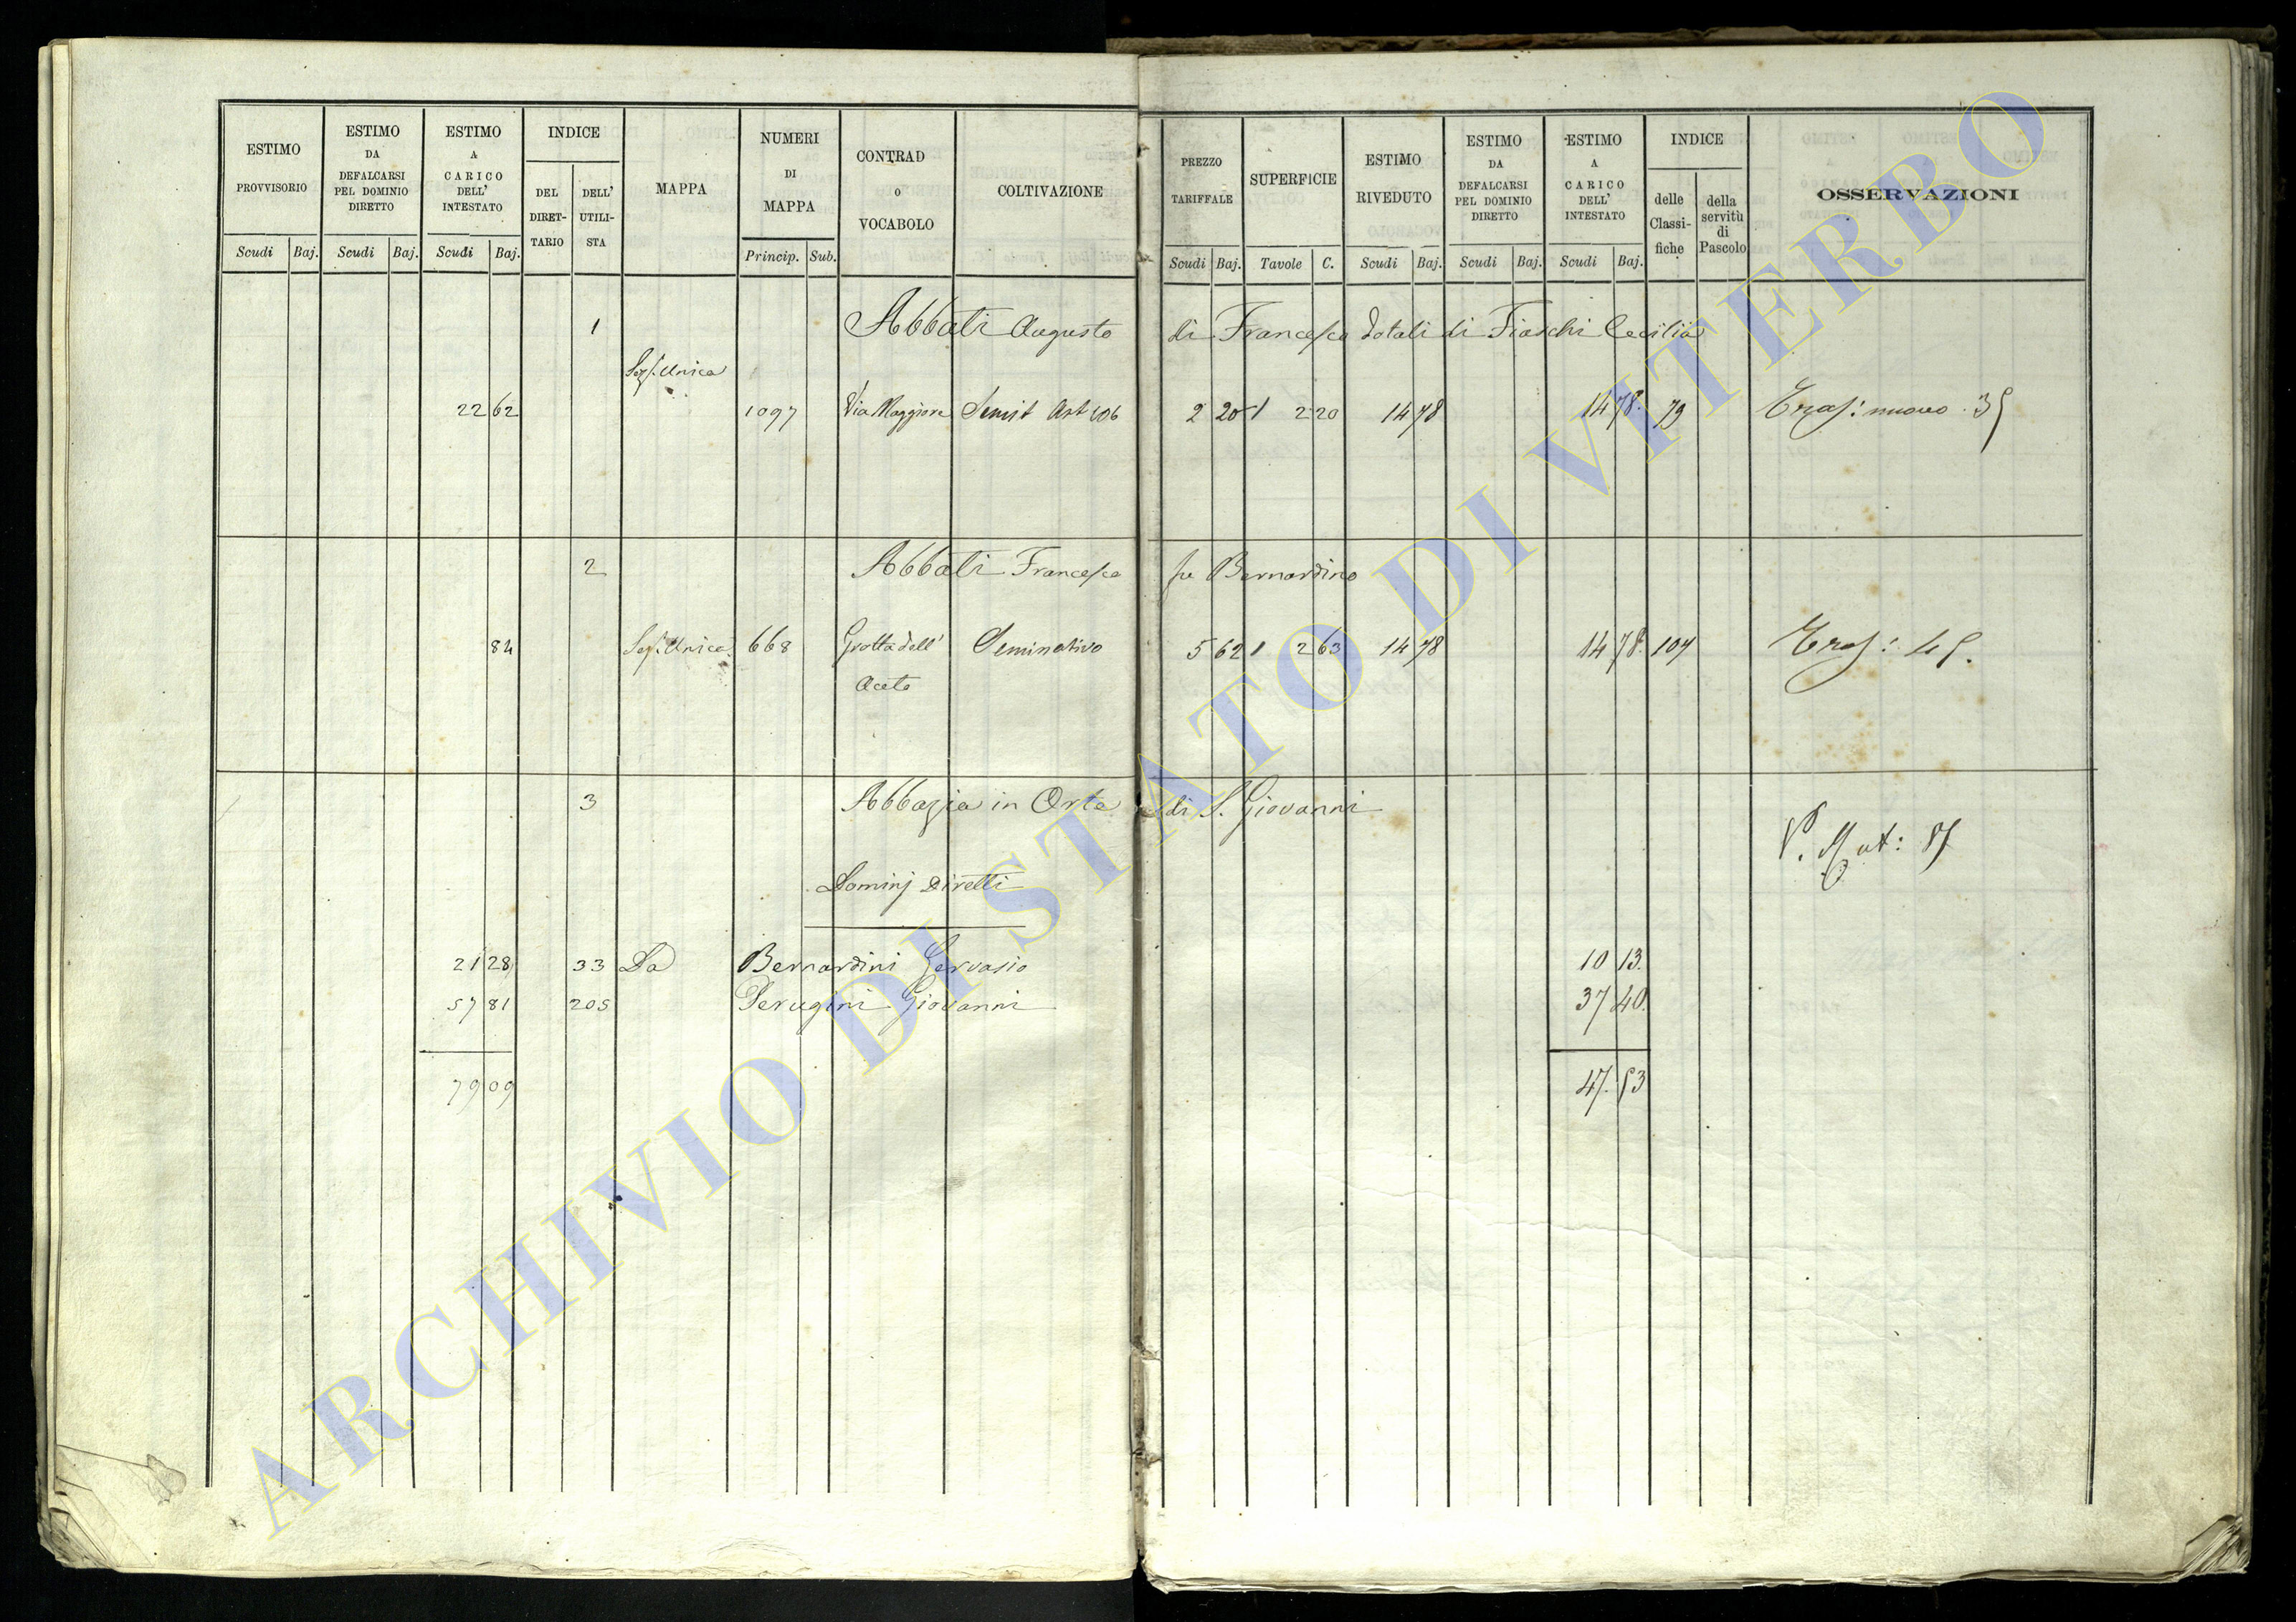 ESTIMO PROVVISORIO
ESTIMO DA DEFALCARSI PEL DOMINIO DIRETTO
ESTIMO A CARICO DELL' INTESTATO
INDICE
DEL DIRET-TARIO
DELL' UTILI-STA
MAPPA
NUMERI DI MAPPA
CONTRAD O VOCABOLO
COLTIVAZIONE
PREZZO TARIFFALE
SUPERFICIE
ESTIMO RIVEDUTO
ESTIMO DA DEFALCARSI PEL DOMINIO DIRETTO
ESTIMO A CARICO DELL' INTESTATO
INDICE
delle Classi-fiche
della servitù di Pascolo
OSSERVAZIONI
Scudi Baj. Scudi Baj. Scudi Baj. Princip. Sub. Scudi Baj. Tavole C. Scudi Baj. Scudi Baj. Scudi Baj.
1 Abbati Augusto di Francesco dotali di Fiaschi Cecilia
Sez. Unica
22 62 1097 Via Maggiore Semit Art 106 2 20 1 2 20 14 78 14 78 79 Tras: nuovo 35
2 Abbati Francesco fu Bernardino
84 Sez. Unica 668 Grotta dell' Seminativo 5 62 1 2 63 14 78 14 78 107 Tras: 45.
Aceto
3 Abbazia in Orte di S. Giovanni
V. Mut: 85
Dominj Diretti
21 28 33 Da Bernardini Gervasio 10 13
57 81 205 Perugini Giovanni 37 40
79 09 47 53
ARCHIVIO DI STATO DI VITERBO